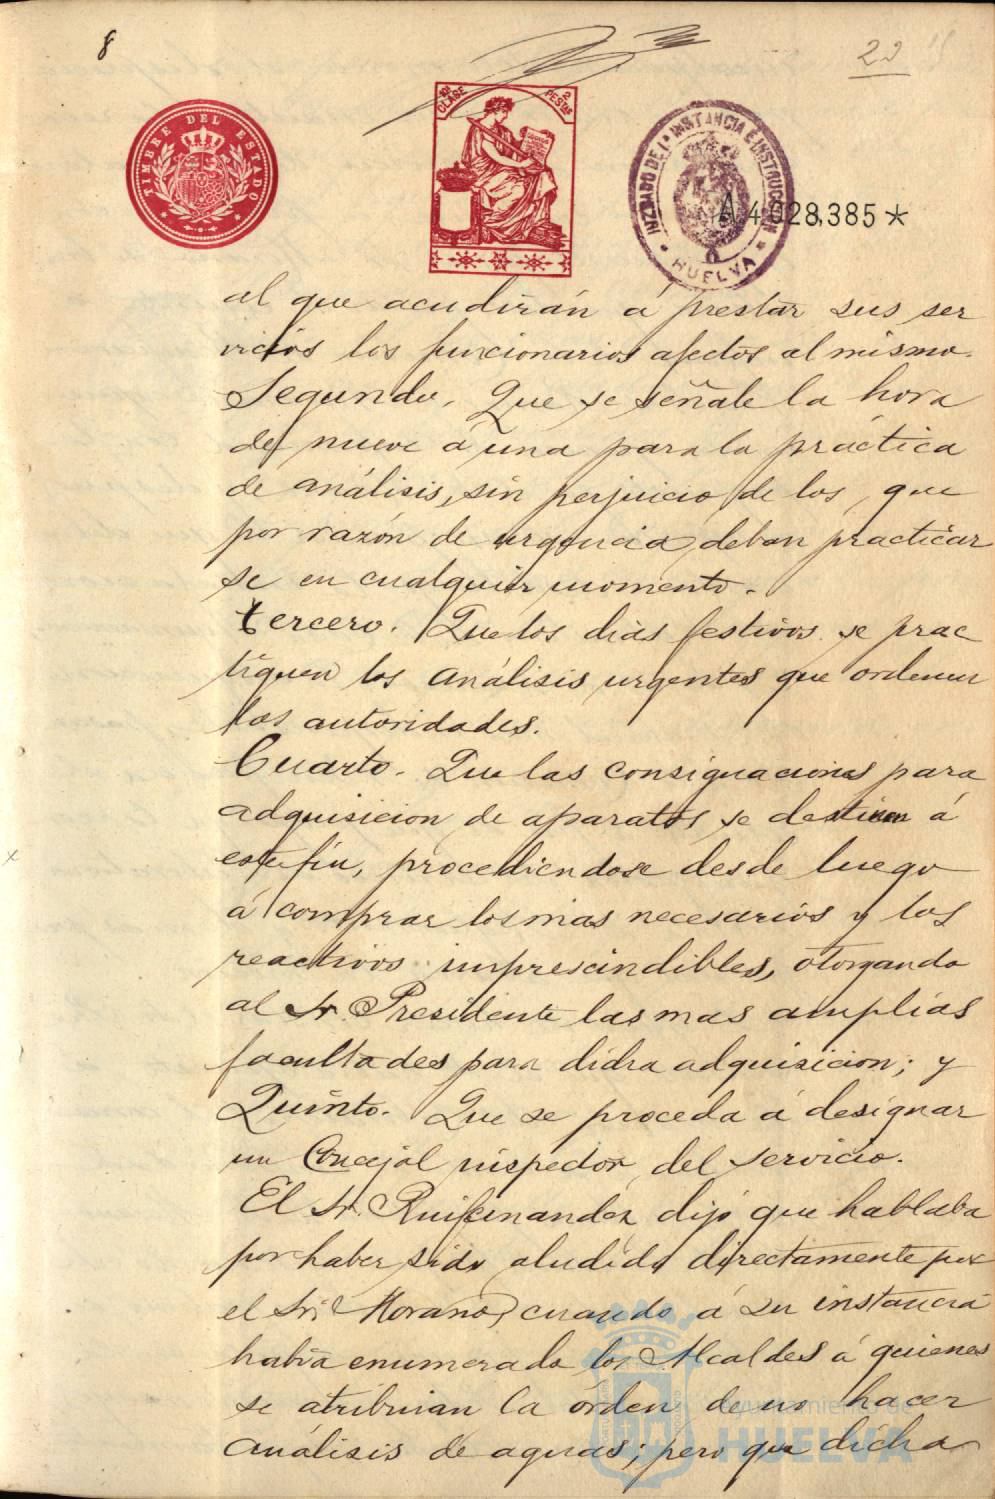 8
22
TIMBRE DEL ESTADO
10ª CLASE
2 PESETAS
JUZGADO DE 1ª INSTANCIA É INSTRUCCION
HUELVA
A4.028,385*
al que acudirán á prestar sus ser
vicios los funcionarios afectos al mismo.
Segundo. Que se señale la hora
de nueve á una para la práctica
de análisis, sin perjuicio de los, que
por razón de urgencia, deban practicar
se en cualquier momento.
tercero. Que los dias festivos se prac
tiquen los análisis urgentes que ordenen
las autoridades.
Cuarto. Que las consignaciones para
adquisicion de aparatos se destinen á
este fin, procediendose desde luego
á comprar los mas necesarios y los
reactivos imprescindibles, otorgando
al Sr. Presidente las mas amplias
facultades para dicha adquisicion; y
Quinto. Que se proceda á designar
un Concejal inspector del servicio.
El Sr. Ruifernandez dijó que hablaba
por haber sido aludido directamente por
el Sr. Morano, cuando á su instancia
habia enumerado los Alcaldes á quienes
se atribuian la órden de no hacer
análisis de aguas; pero que dicha
Ayuntamiento de
HUELVA